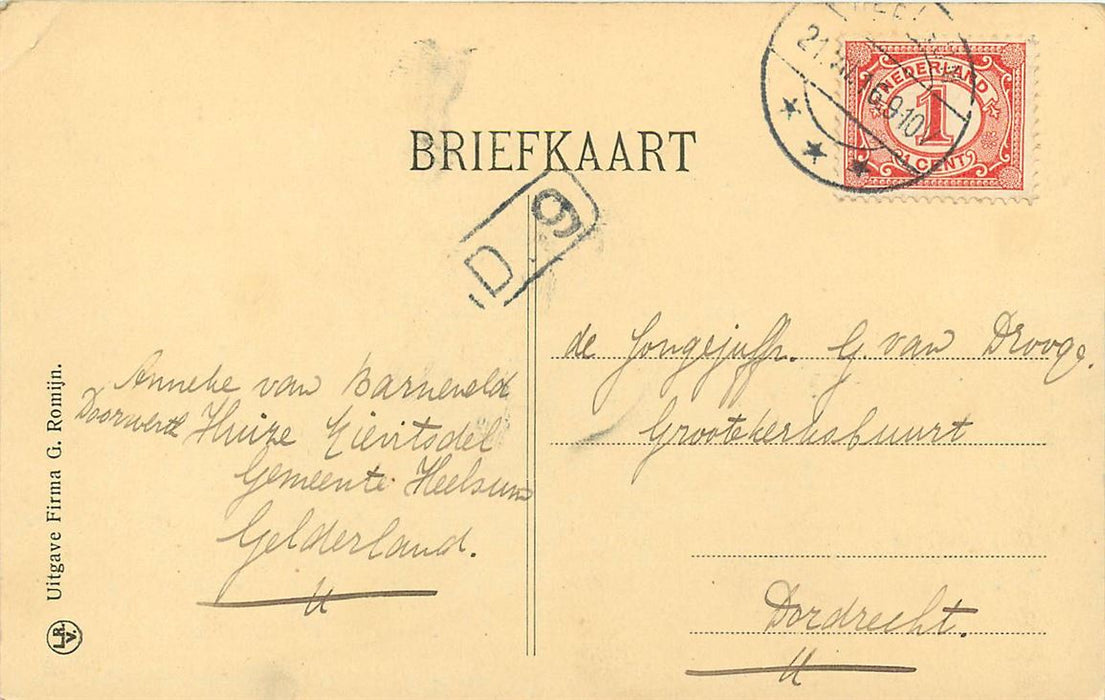 BRIEFKAART
NEDERLAND
1
CENT
21. 16.9-10V
D 9
Anneke van Barneveld
Doorwerth Huize Kievitsdel
Gemeente Heelsum
Gelderland.
de Jongejuffr. G. van Drooge.
Grootekerksbuurt
Dordrecht.
Uitgave Firma G. Romijn.
L.R.
V.